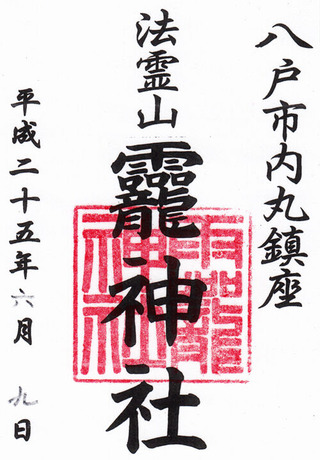 八戸市内丸鎮座
法霊山
龗神社
平成二十五年六月九日